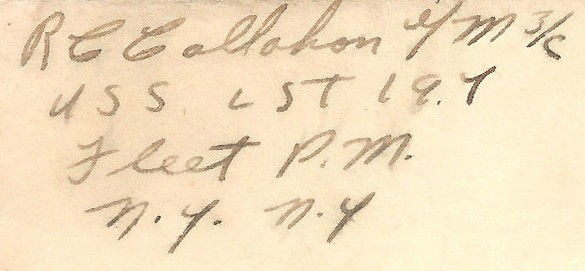 R C Callahan E/M 3/c
USS LST 197
Fleet P.M.
N.Y. N.Y